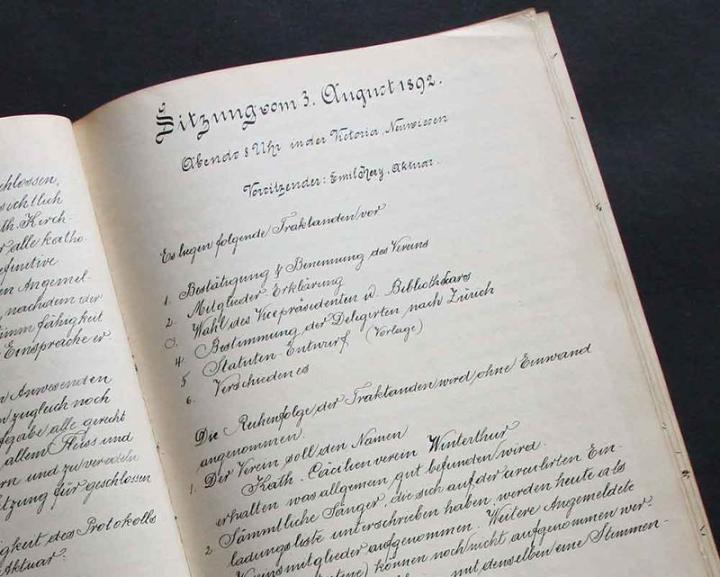 chlossen,
sichtlich
th. Kirch-
r alle katho-
efinitive
en Angemel-
, nachdem der
timmfähigkeit
Einsprache er
n Anwesenden
n zugleich noch
fgabe alle gerecht
allem Fleiss und
ern und zu veredeln
itzung für geschlossen
igkeit des Protokolls
Aktuar:
Sitzung vom 3. August 1892.
Abends 8 Uhr in der Victoria Neuwiesen
Vorsitzender: Emil Herz, Aktuar.
Es liegen folgende Traktanden vor
1. Bestätigung & Benennung des Vereins
2. Mitglieder-Erklärung
3. Wahl des Vicepräsidenten u. Bibliothekars
4. Bestimmung der Delegirten nach Zürich
5 Statuten-Entwurf (Vorlage)
6. Verschiedenes
Die Reihenfolge der Traktanden wird ohne Einwand
angenommen.
1. Der Verein soll den Namen
Kath. Cäcilienverein Winterthur
erhalten was allgemein gut befunden wird.
2 Sämmtliche Sänger, die sich auf der circulirten Ein-
ladungsliste unterschrieben haben, werden heute als
Vereinsmitglieder aufgenommen. Weitere Angemeldete
können noch nicht aufgenommen wer-
mit denselben eine Stimmen-